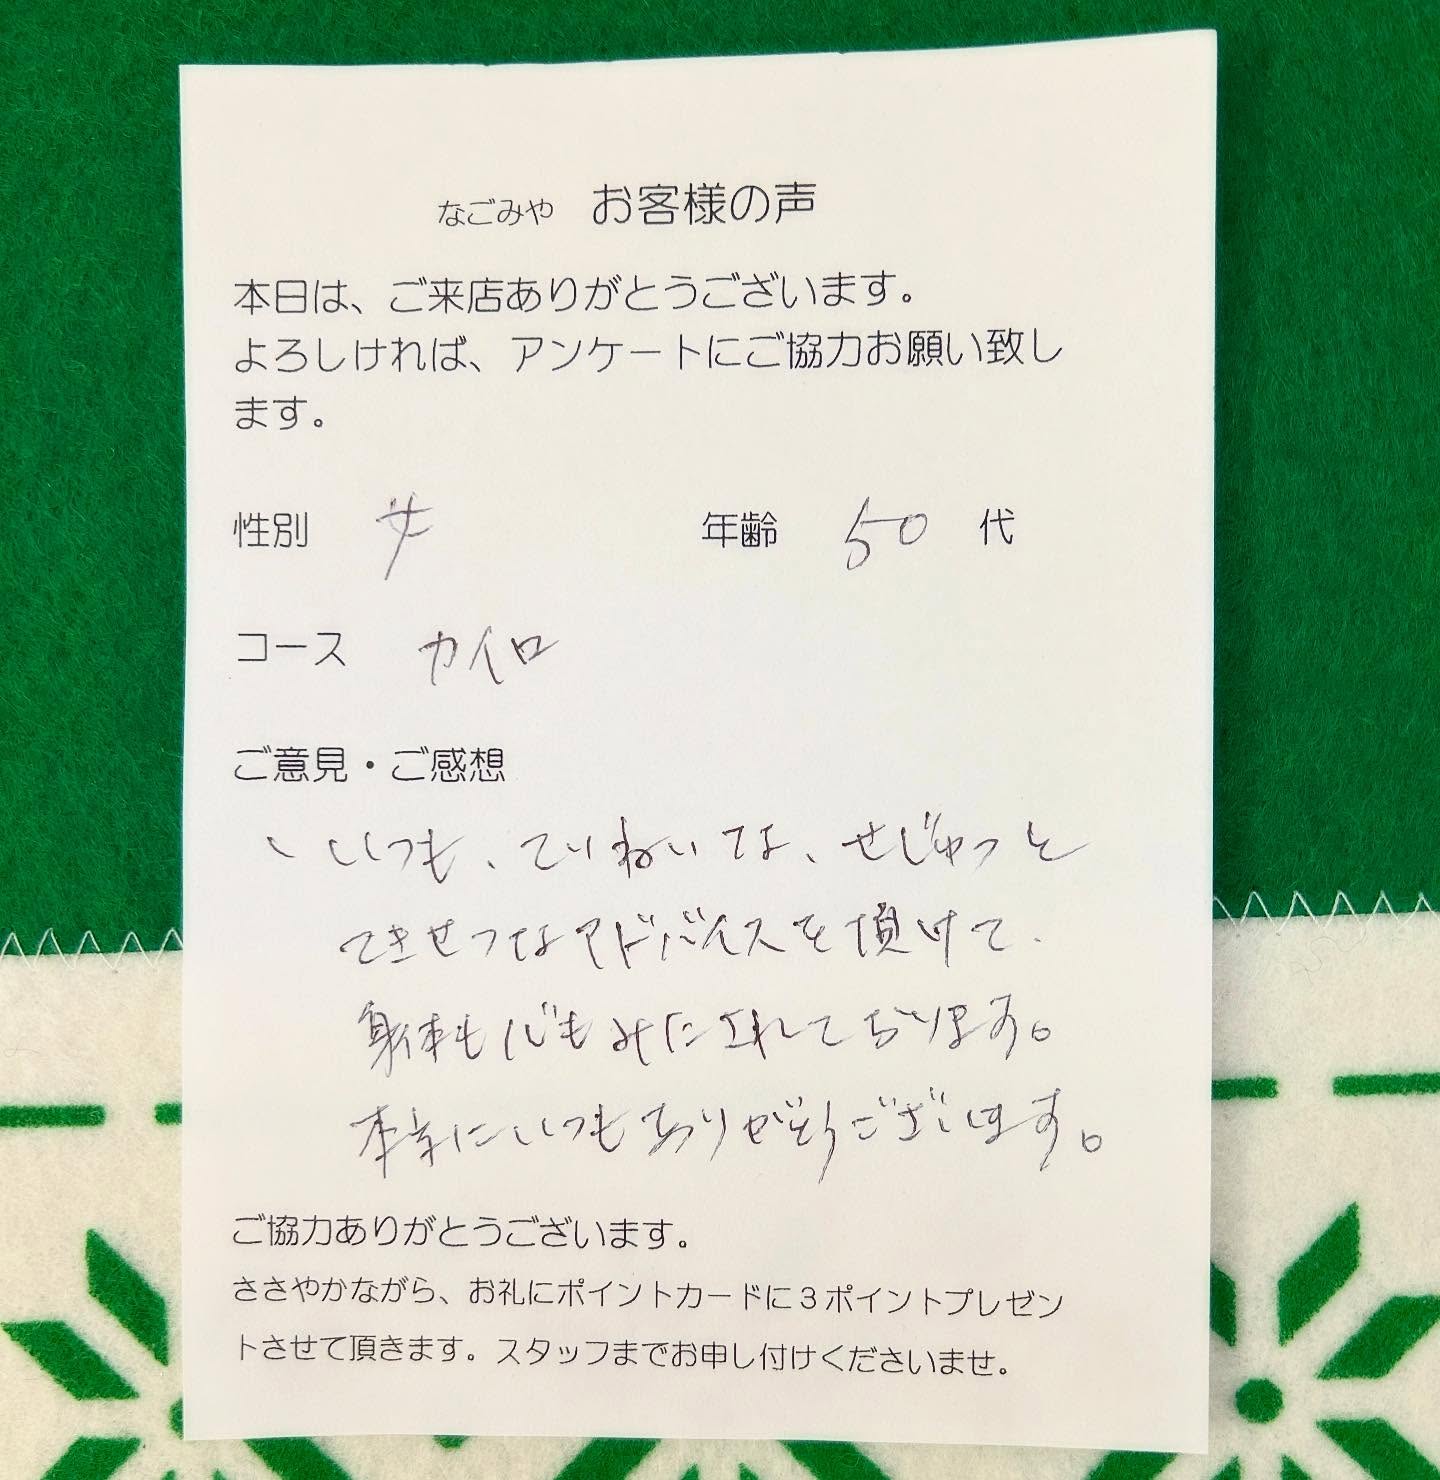 なごみや お客様の声
本日は、ご来店ありがとうございます。
よろしければ、アンケートにご協力お願い致し
ます。
性別 女 年齢 50 代
コース カイロ
ご意見・ご感想
、いつも、ていねいな、せじゅつと
てきせつなアドバイスを頂けて、
身体も心もみたされております。
本当にいつもありがとうございます。
ご協力ありがとうございます。
ささやかながら、お礼にポイントカードに3ポイントプレゼン
トさせて頂きます。スタッフまでお申し付けくださいませ。